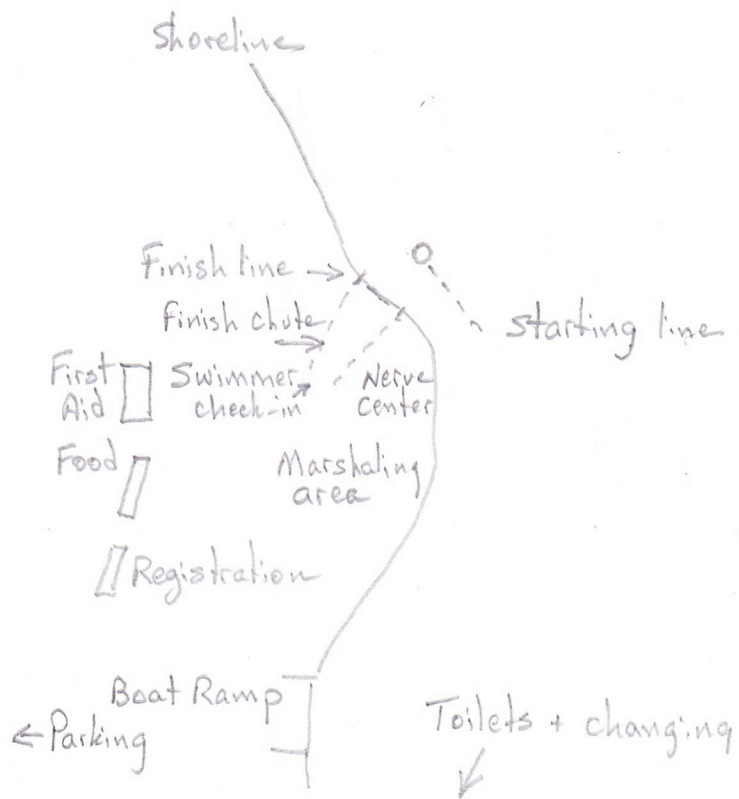 Shoreline
Finish line
Finish chute
starting line
First
Aid
Swimmer
check-in
Nerve
Center
Food
Marshaling
area
Registration
Boat Ramp
Parking
Toilets + changing